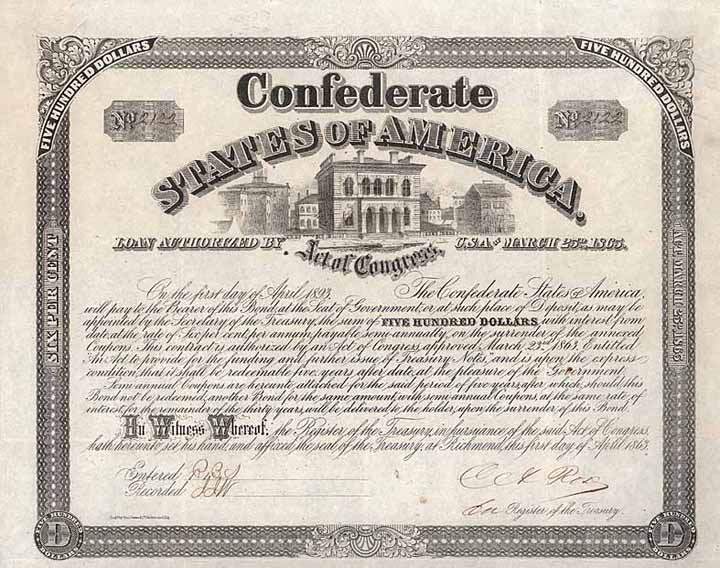 FIVE HUNDRED DOLLARS
FIVE HUNDRED DOLLARS
Confederate
No 2122
No 2122
STATES OF AMERICA.
LOAN AUTHORIZED BY
Act of Congress,
C.S.A. OF MARCH 23RD. 1863.
SIX PER CENT
On the first day of April 1893, The Confederate States of America,
will pay to the Bearer of this Bond, at the Seat of Government, or at such place of Deposit, as may be
appointed by the Secretary of the Treasury, the sum of FIVE HUNDRED DOLLARS with interest from
date, at the rate of Six per cent per annum, payable semi annually, on the surrender of the annexed
Coupons. This contract is authorized by an Act of Congress, approved, March 23rd 1863, Entitled
"An Act to provide for the funding and further issue of Treasury Notes," and is upon the express
condition, that it shall be redeemable five years after date, at the pleasure of the Government.
Semi annual Coupons are hereunto attached for the said period of five years, after which, should this
Bond not be redeemed, another Bond for the same amount, with semi annual Coupons, at the same rate of
interest, for the remainder of the thirty years, will be delivered to the holder, upon the surrender of this Bond.
In Witness Whereof, the Register of the Treasury, in pursuance of the said Act of Congress,
hath hereunto set his hand, and affixed, the seal, of the Treasury, at Richmond, this first day of April 1863.
Entered
Recorded
C A Rose
for Register of the Treasury.
FIVE HUNDRED
D
DOLLARS
FIVE HUNDRED
D
DOLLARS